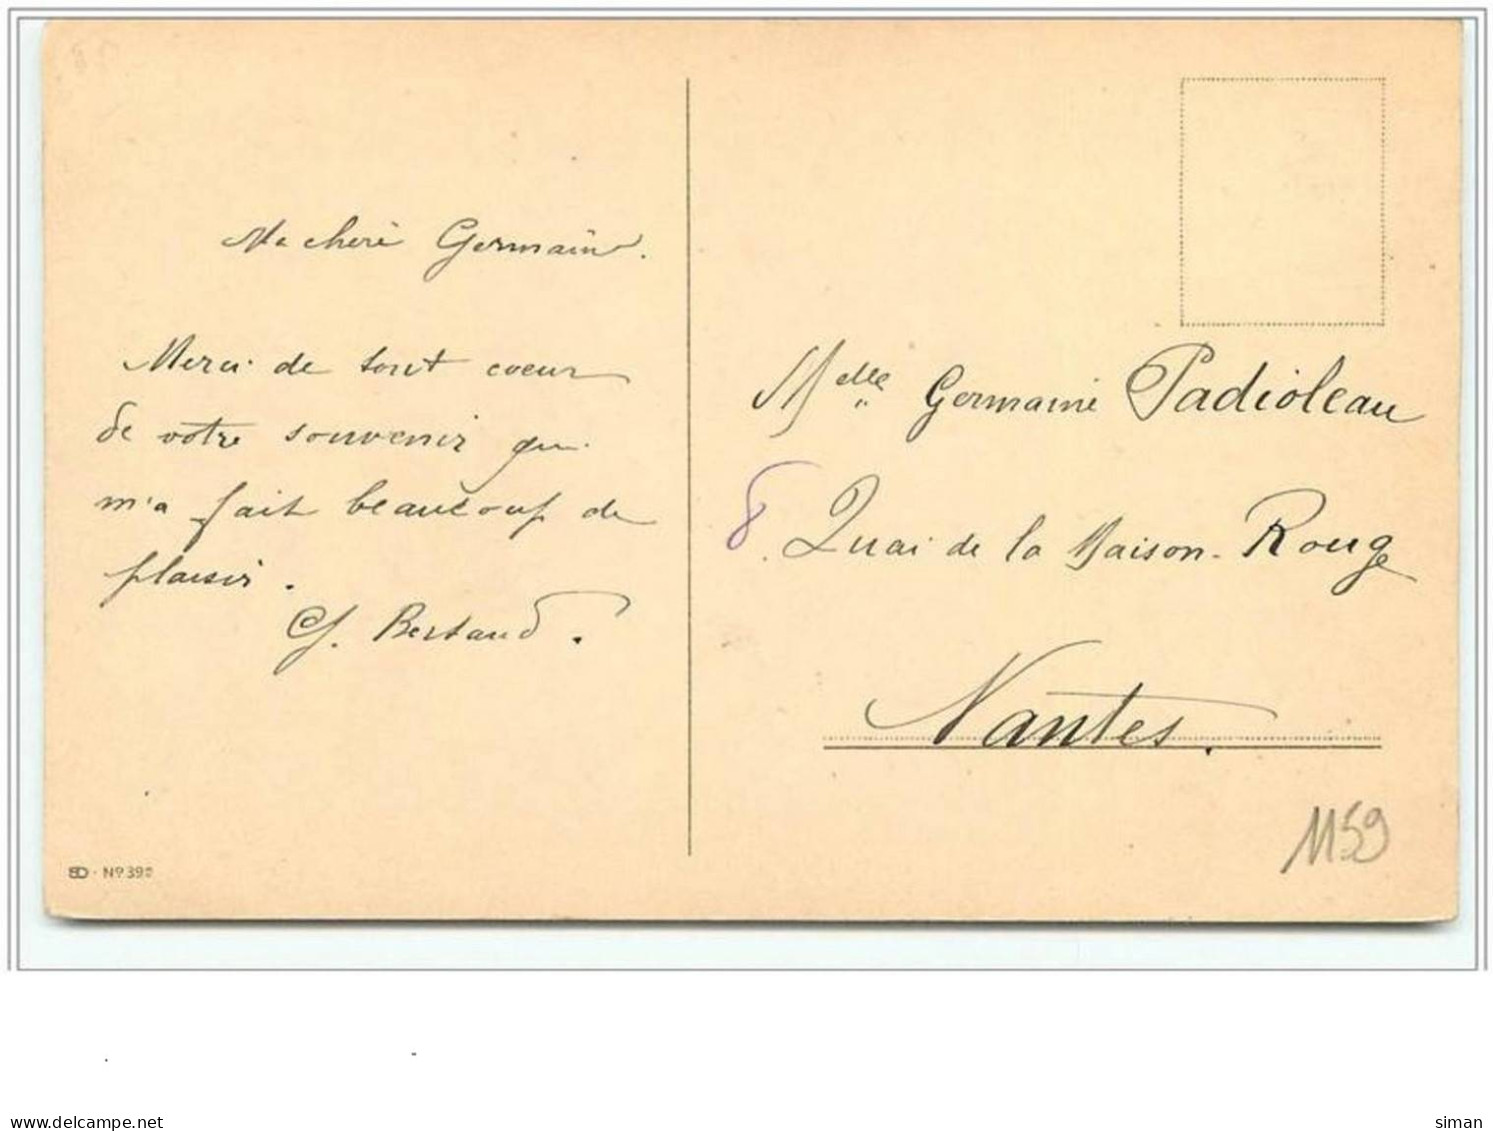 Ma chère Germaine.
Merci de tout coeur
de votre souvenir qui
m'a fait beaucoup de
plaisir.
Bertaud.
Melle Germaine Padioleau
8. Quai de la Maison-Rouge
Nantes.
1159
Nº 39
www.delcampe.net
siman